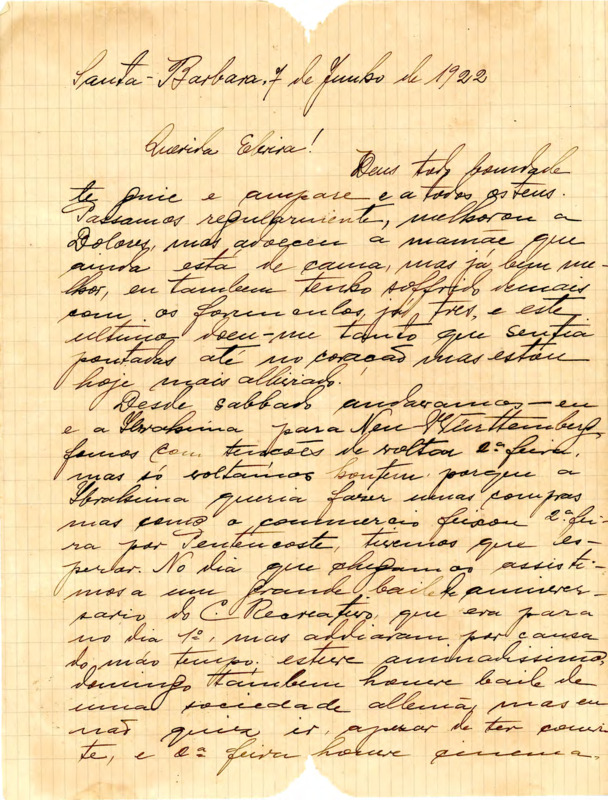 Santa-Barbara, 7 de Junho de 1922
Querida Elvira!
Deus todo bondade
te guie e ampare e a todos os teus.
Passamos regularmente, melhorou a
Dolores, mas adoeceu a mamãe que
ainda está de cama, mas já bem me-
lhor, eu tambem tenho soffrido demais
com os forunculos, já tres, e este
ultimo doeu-me tanto que sentia
pontadas até no coração mas estou
hoje mais alliviado.
Desde sabbado andavamos—eu
e a Ibrahima para Neu-Württemberg,
fomos com tenções de voltar 2ª feira,
mas só voltámos hontem porque a
Ibrahima queria fazer umas compras
mas como o commercio feixou 2ª fei-
ra por Pentencoste, tivemos que es-
perar. No dia que chegamos assisti-
mos a um grande baile de anniver-
sario do C. Recreativo, que era para
no dia 1º, mas addiaram por causa
do máo tempo, esteve animadissimo,
domingo tambem houve baile de
uma sociedade allemã, mas eu
não quiz ir, apezar de ter convi-
te, e 2ª feira houve cinema.